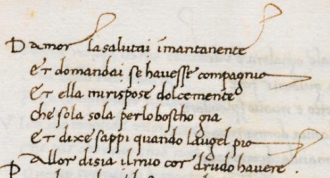 D amor la salutai imantanente
Et domandai se havesse compagnia
Et ella mi rispose dolcemente
Che sola sola per lo boscho gia
Et dixe sappi quando laugel pia
Allor disia il mio cor drudo havere